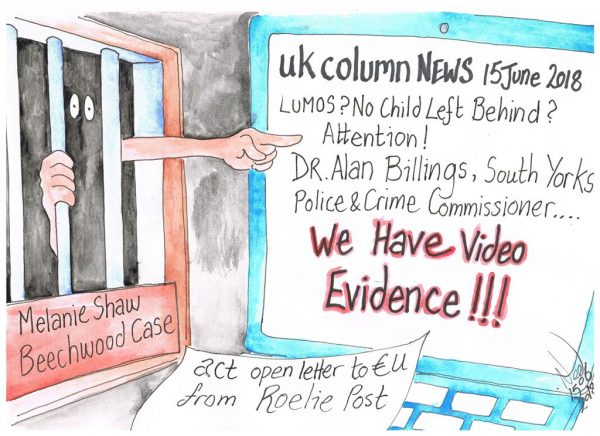 uk column NEWS 15 June 2018
LUMOS? No Child Left Behind?
Attention!
DR. Alan Billings, South Yorks
Police & Crime Commissioner....
We Have Video
Evidence!!!
Melanie Shaw
Beechwood Case
act open letter to €U
from Roelie Post